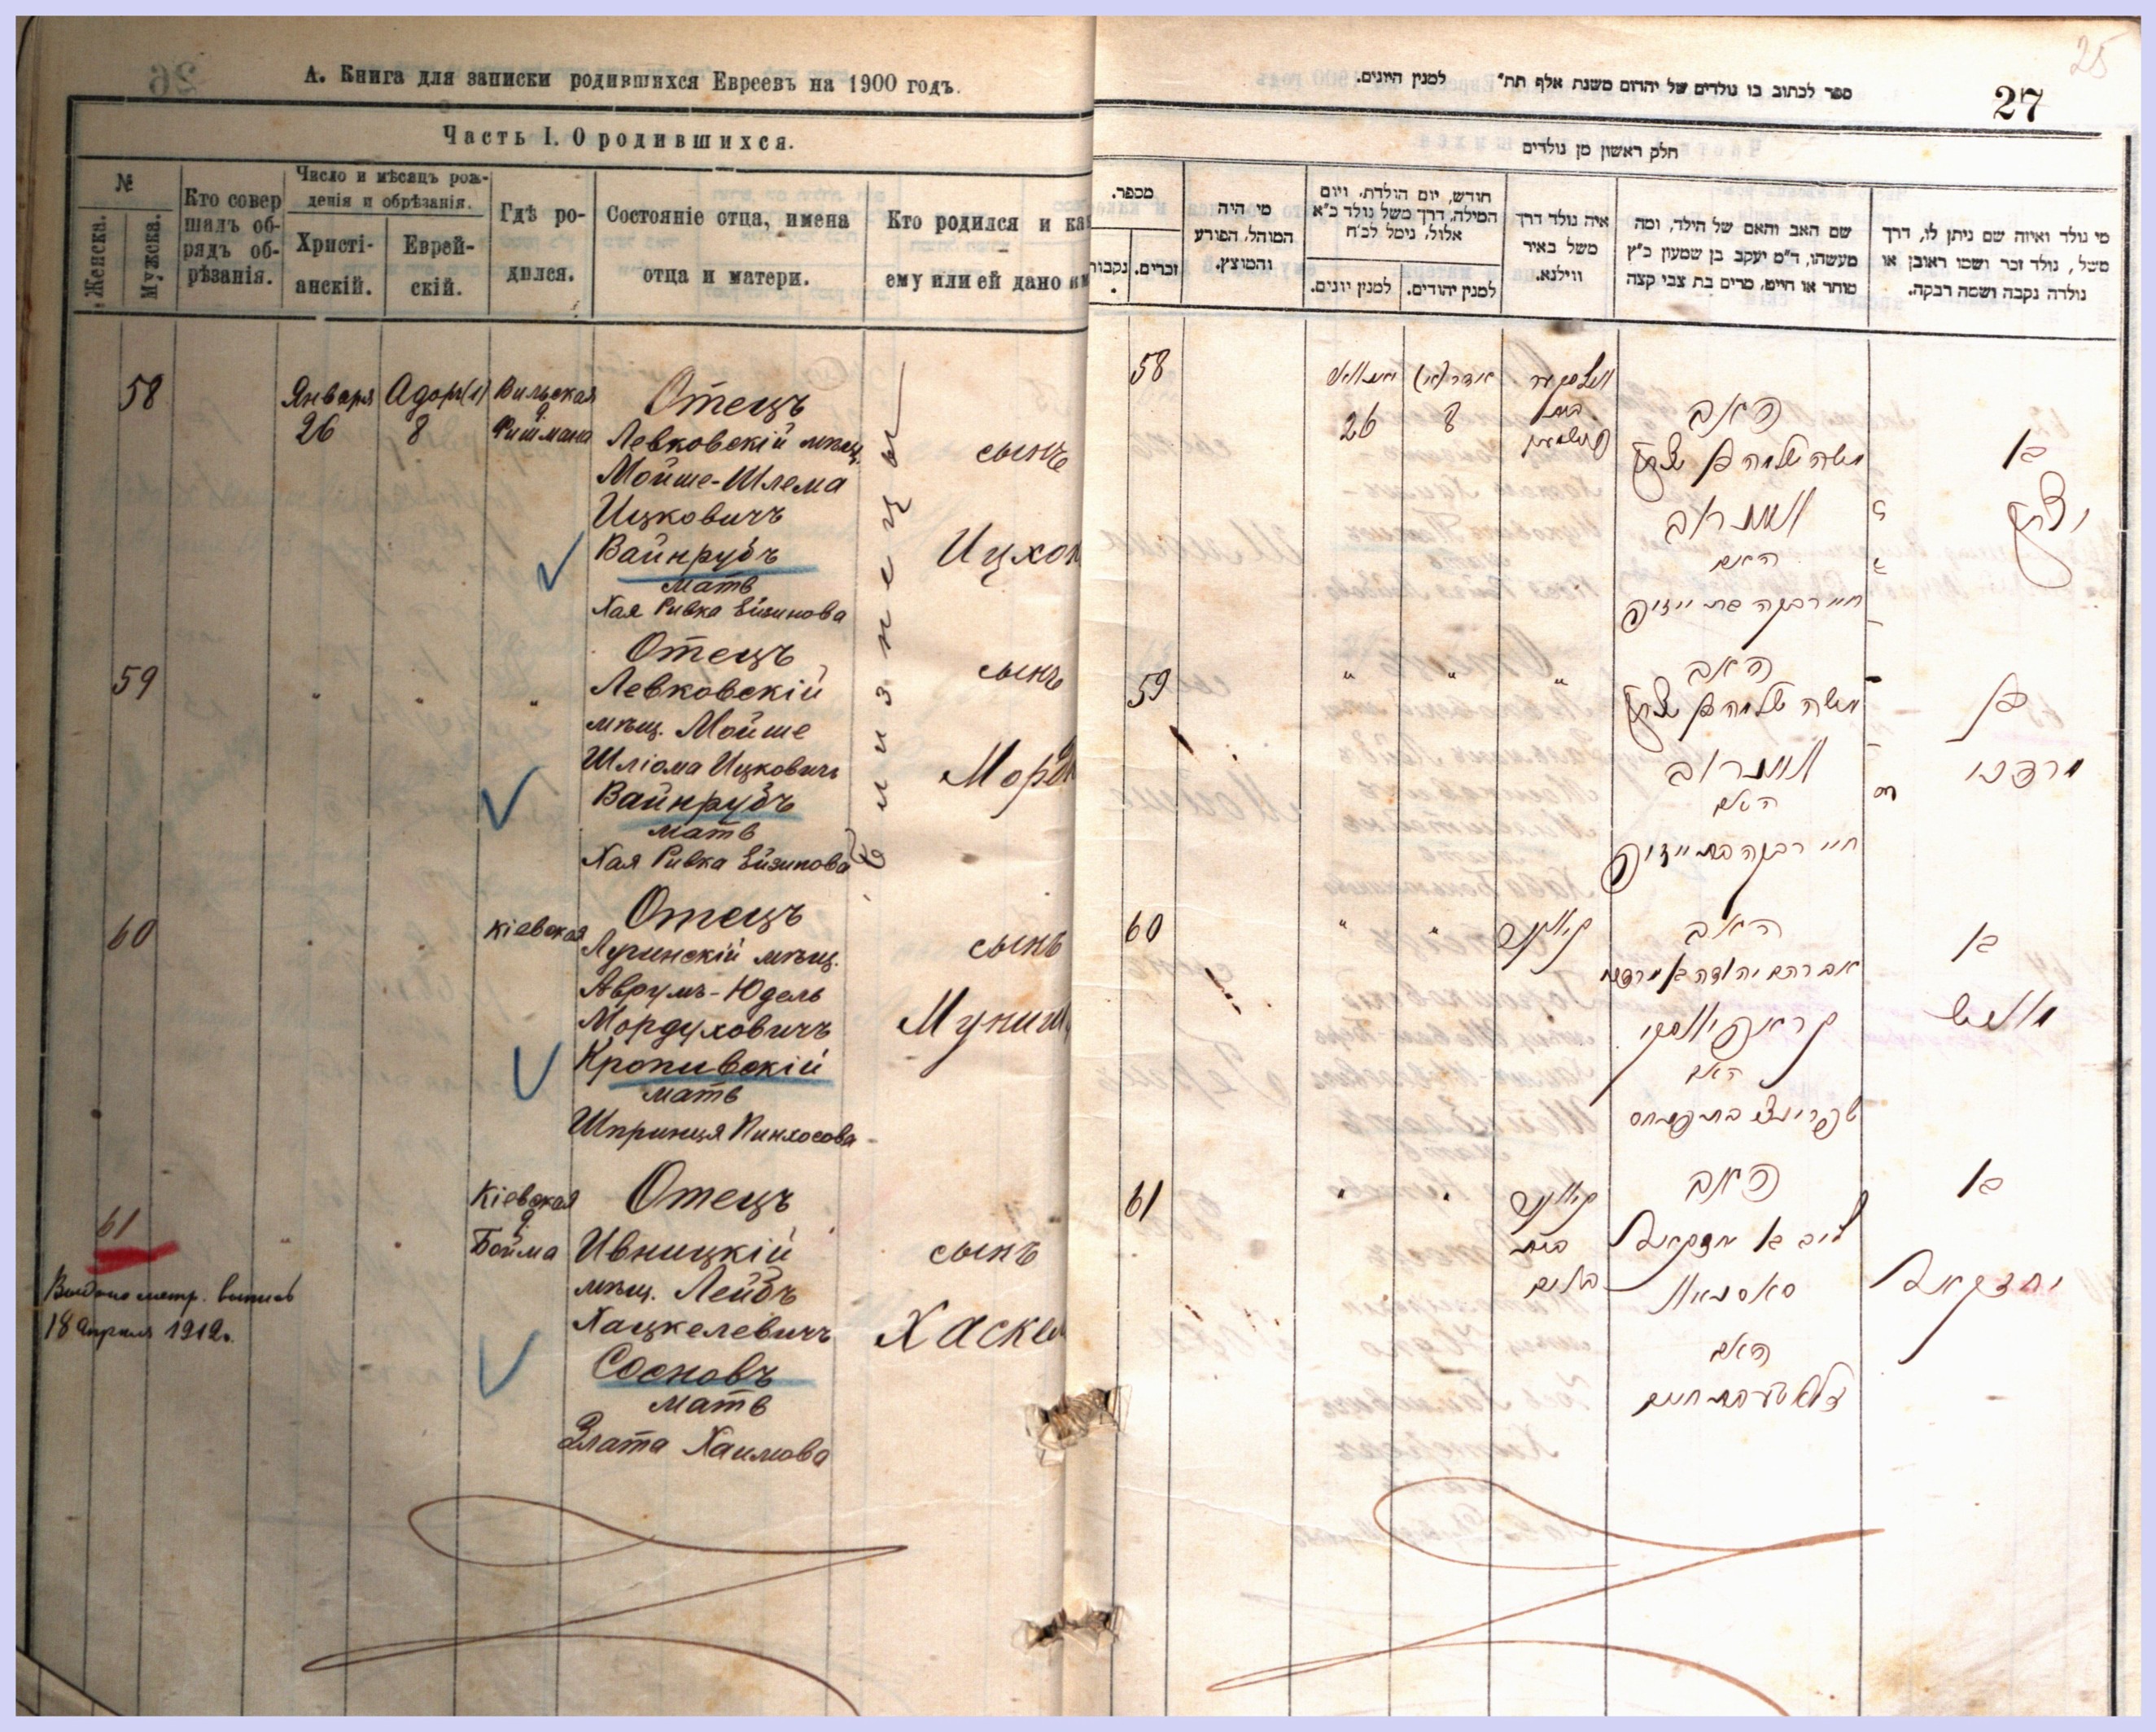 А. Книга для записки родившихся Евреевъ на 1900 годъ.
Часть I. О родившихся.
№
Женска.
Мужска.
Кто совер
шалъ об-
рядъ об-
рѣзанія.
Число и мѣсяцъ рож-
денія и обрѣзанія.
Христі-
анскій.
Еврей-
скій.
Гдѣ ро-
дился.
Состояніе отца, имена
отца и матери.
Кто родился и ка
ему или ей дано им
58
Января
26
Адоръ(1)
8
Вильская
д.
Фишмана
Отецъ
Левковскій мѣщ.
Мойше-Шлема
Ицковичъ
Вайнрубъ
мать
Хая Ривка Ейзинова
сынъ
Ицхок
близнецы
59
" " "
Отецъ
Левковскій
мѣщ. Мойше
Шліома Ицковичъ
Вайнрубъ
мать
Хая Ривка Ейзинова
сынъ
Морд
60
Кіевская
Отецъ
Лугинскій мѣщ.
Аврумъ-Юдель
Мордуховичъ
Кропивскій
мать
Шпринця Пинхосова
сынъ
Муниш
61
Выдано метр. выпись
18 Апрѣля 1912г.
Кіевская
д.
Бойма
Отецъ
Ивницкій
мѣщ. Лейбъ
Хацкелевичъ
Сосновъ
мать
Злата Хаимова
сынъ
Хаскел
25
27
ספר לכתוב בו נולדים של יהדום משנת אלף תת" למנין היונים.
חלק ראשון מן נולדים
מספר.
זכרים.
נקבות.
מי היה
המוהל, הפורע
והמוצץ.
חודש, יום הולדת, ויום
המילה, דרך משל נולד כ"א
אלול, נימל לכ"ח
למנין יונים.
למנין יהודים.
איה נולד דרך
משל באיר
ווילנא.
שם האב והאם של הילד, ומה
מעשהו, ד"מ יעקב בן שמעון כ"ץ
סוחר או חייט, מרים בת צבי קצה
מי נולד ואיזה שם ניתן לו, דרך
משל, נולד זכר ושמו ראובן או
נולדה נקבה ושמה רבקה.
58
יאנוואר
26
אדר (א)
8
ווילסקער
האב
משה שלמה בן יצחק
וויינרוב
האם
חיי רבקה בת
בן
יצחק
59
" " "
האב
משה שלמה בן יצחק
וויינרוב
האם
חיי רבקה בת
בן
מרדכי
60
" "
האב
אברהם יהודה בן מרדכי
קראפיווסקי
האם
שפרינצע בת פנחס
בן
מוניש
61
" "
האב
ליב בן יחזקאל
סאסנאוו
האם
זלאטע בת חיים
בן
יחזקאל